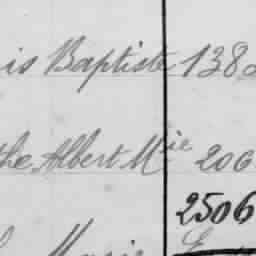 is Baptiste 138
the Albert Mie 206
2506